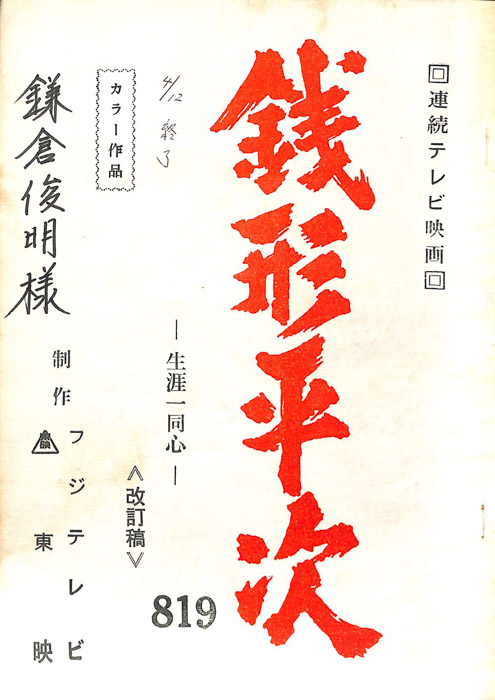 回連続テレビ映画回
銭形平次
819
―生涯一同心―
<改訂稿>
4/12 終了
カラー作品
制作
フジテレビ
東映
鎌倉俊明様